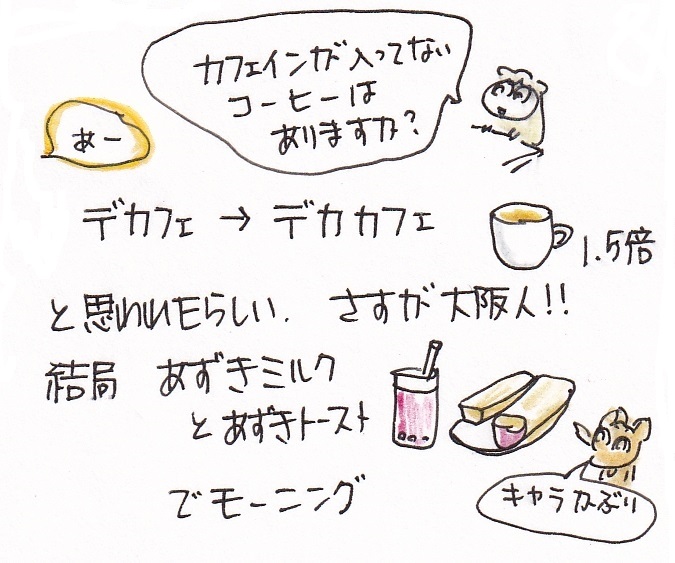 カフェインが入ってない
コーヒーは
ありますか?
あー
デカフェ → デカカフェ
1.5倍
と思われてらしい. さすが大阪人!!
結局 あずきミルク
とあずきトースト
でモーニング
キャラかぶり